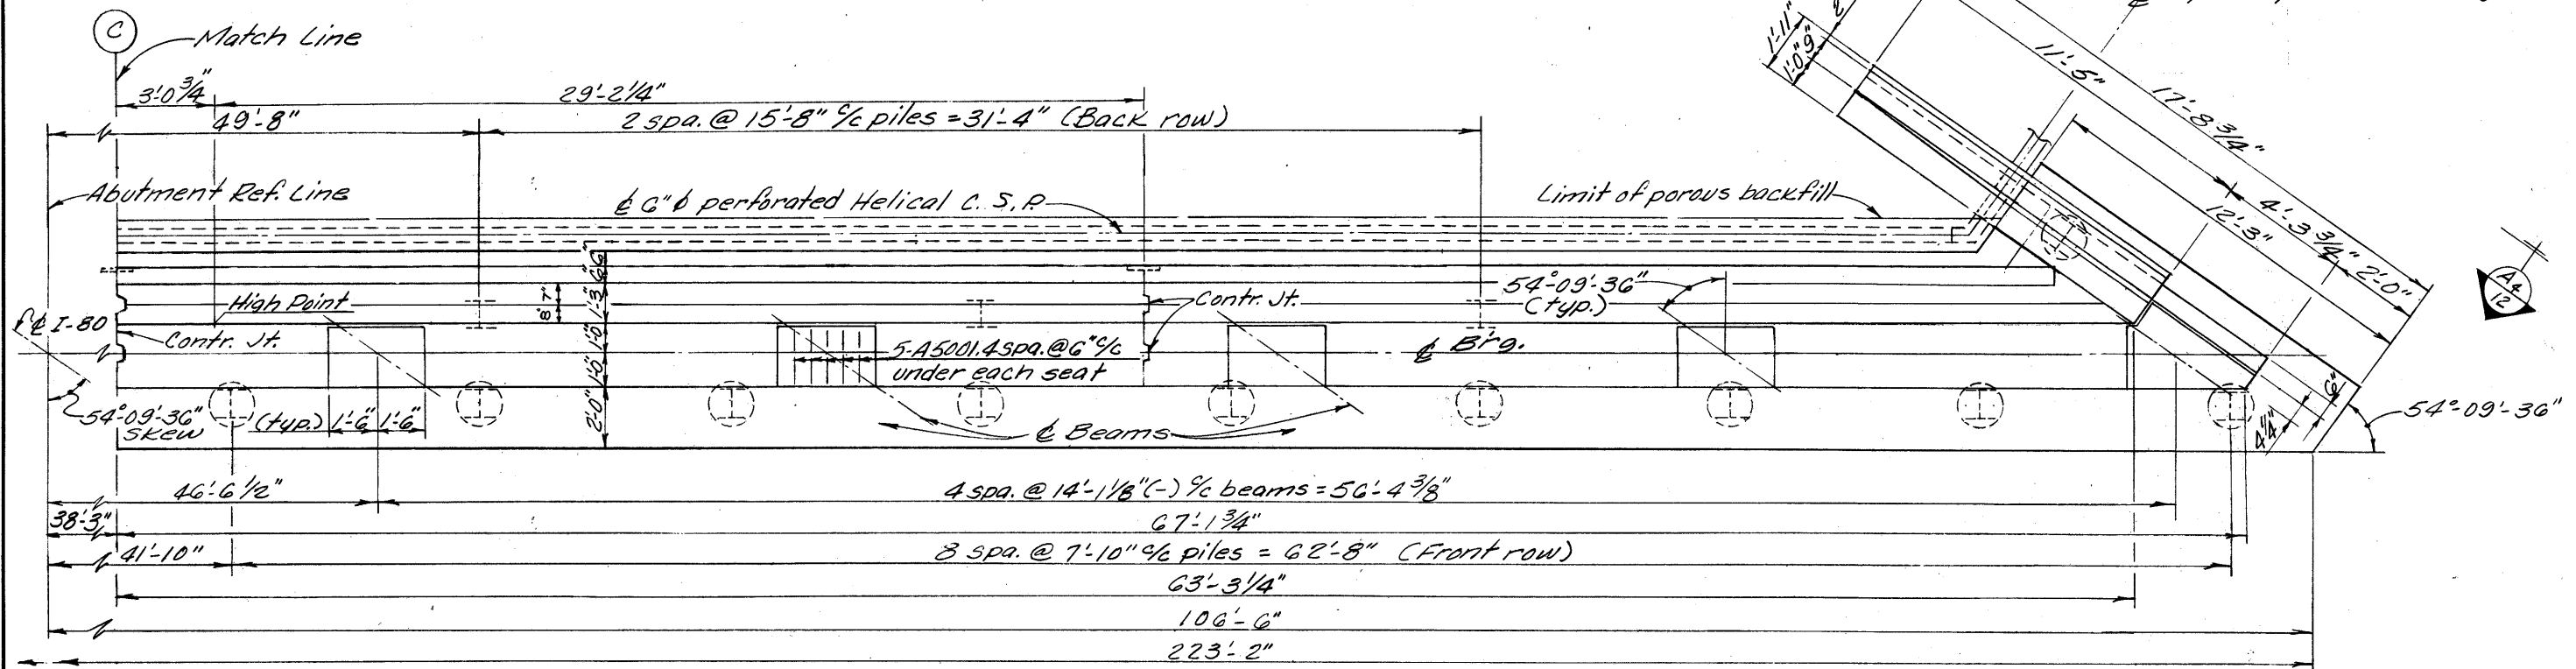 C
Match Line
3'-0 3/4"
29'-2 1/4"
49'-8"
2 spa. @ 15'-8" c/c piles = 31'-4" (Back row)
Abutment Ref. Line
℄ 6"ϕ perforated Helical C. S. P.
Limit of porous backfill
1'-11"
1'-0"
9"
2
11'-5"
17'-8 3/4"
12'-3"
4'-3 3/4"
2'-0"
A4
12
6"
6"
1'-3"
7"
8"
1'-0"
1'-0"
2'-0"
High Point
℄ I-80
Contr. Jt.
Contr. Jt.
54°-09'-36"
(typ.)
℄ Br'g.
5-A5001.4 spa. @ 6" c/c
under each seat
54°-09'-36"
skew
(typ.) 1'-6" 1'-6"
℄ Beams
6"
4 1/4"
54°-09'-36"
46'-6 1/2"
4 spa. @ 14'-1 1/8"(-) c/c beams = 56'-4 3/8"
38'-3"
67'-1 3/4"
41'-10"
8 spa. @ 7'-10" c/c piles = 62'-8" (Front row)
63'-3 1/4"
106'-6"
223'-2"